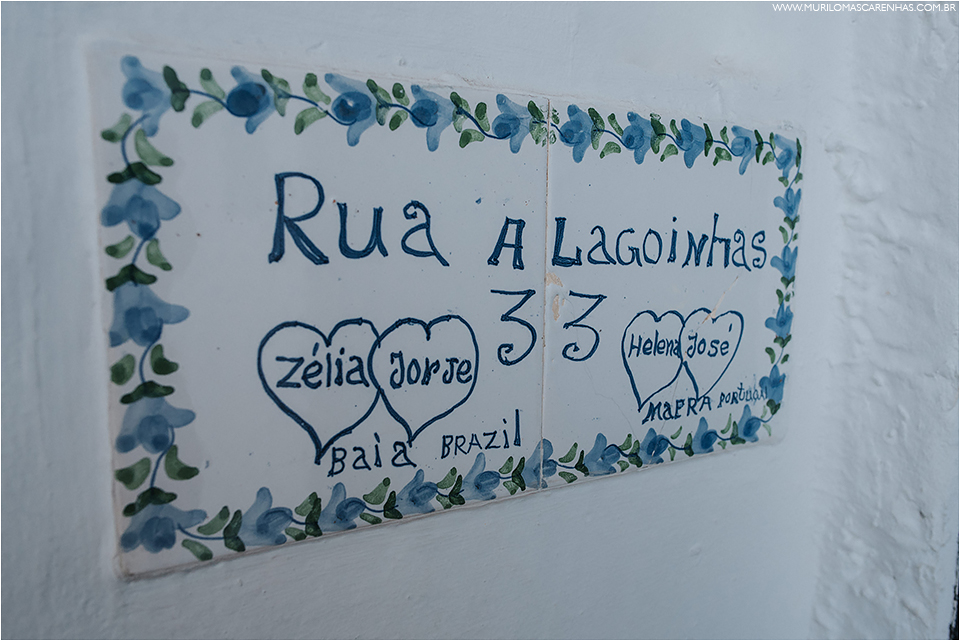 WWW.MURILOMASCARENHAS.COM.BR
Rua ALAGOINHAS
33
Zélia Jorje
Helena José
BAiA BRAZil
MAFRA PORTUGAL